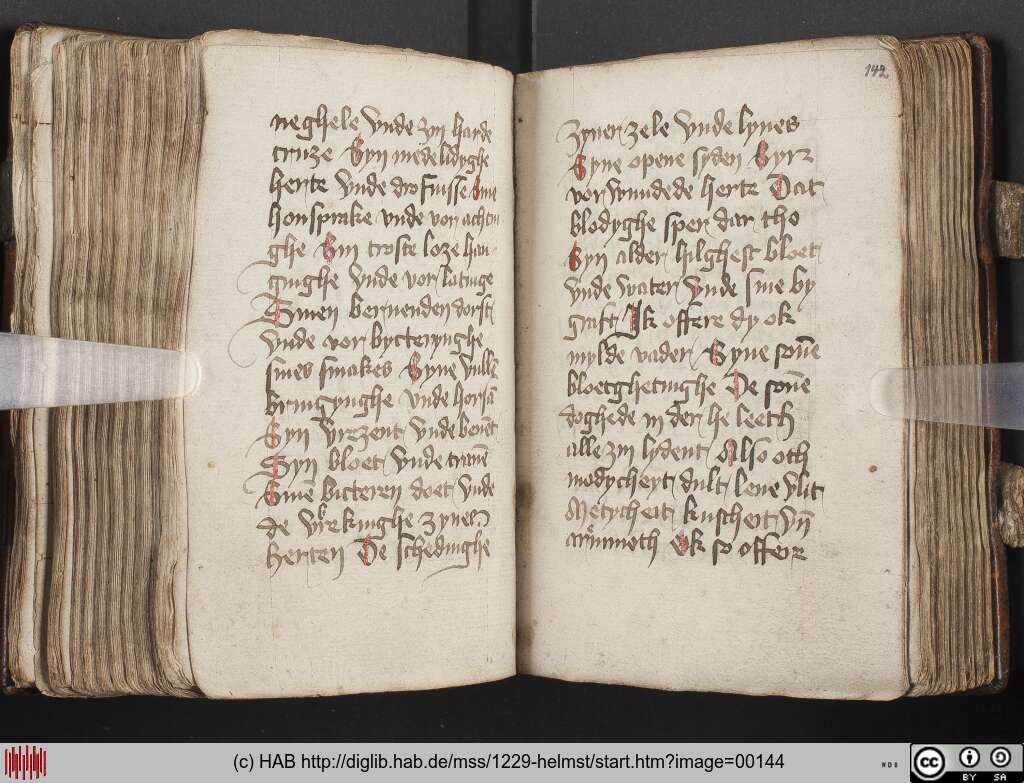 neghele vnde zyn harde
cruze Syn medelidyghe
herte vnde drofnisse Sine
honsprake vnde vor achtin
ghe Sin troste loze han
ginghe vnde vor latinge
Sinen bernenden dorst
vnde vor bytterynghe
sines smakes Syne vullē
bringynghe vnde horsā
Syn vrzent vnde benēt
Syn bloet vnde tranē
Sinē bitteren doet vnde
de vrekinghe zynes
herten De schedinghe
142
zyner zele vnde lyues
Syne opene syden Syn
vor wundede herte Dat
blodyghe sper dar tho
Syn alder hilghest bloet
vnde water vnde sine by
graft Ik offere dy ok
mylde vader Syne souē
bloetghetinghe De souē
doghede in der he leeth
alle zin lydent Also oth
modycheyt dult leue vlit
Metycheit kuscheit vñ
armmoth Ok so offere
(c) HAB http://diglib.hab.de/mss/1229-helmst/start.htm?image=00144
cc BY SA